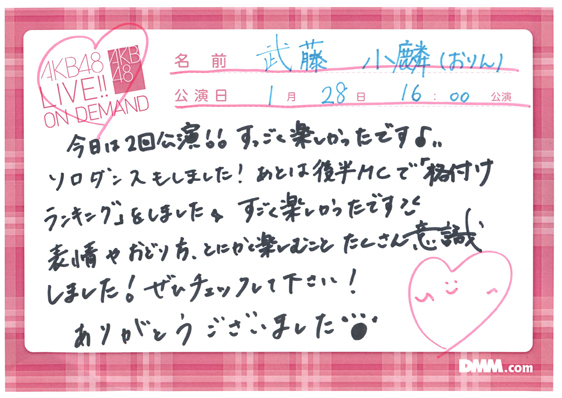 AKB48
LIVE!!
ON DEMAND
AKB
48
名前 武藤 小麟(おりん)
公演日 1月28日 16:00 公演
今日は2回公演!! すっごく楽しかったです♪
ソロダンスもしました! あとは後半MCで「格付け
ランキング」をしました すごく楽しかったです
表情やおどり方、とにかく楽しむこと たくさん意識
しました! ぜひチェックして下さい!
ありがとうございました
DMM.com